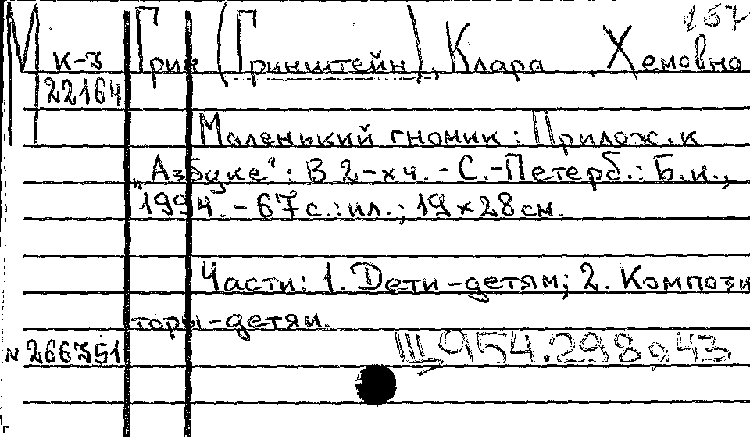 157
М К-3 Грин (Гринштейн), Клара Хемовна
22164
Маленький гномик : Прилож. к
„Азбуке“: В 2-х ч. - С.-Петерб.: Б.и.,
1994. - 67 с.: ил.; 19 × 28 см.
Части: 1. Дети-детям; 2. Компози
торы-детям.
N 266351 Щ 954.298 я 43